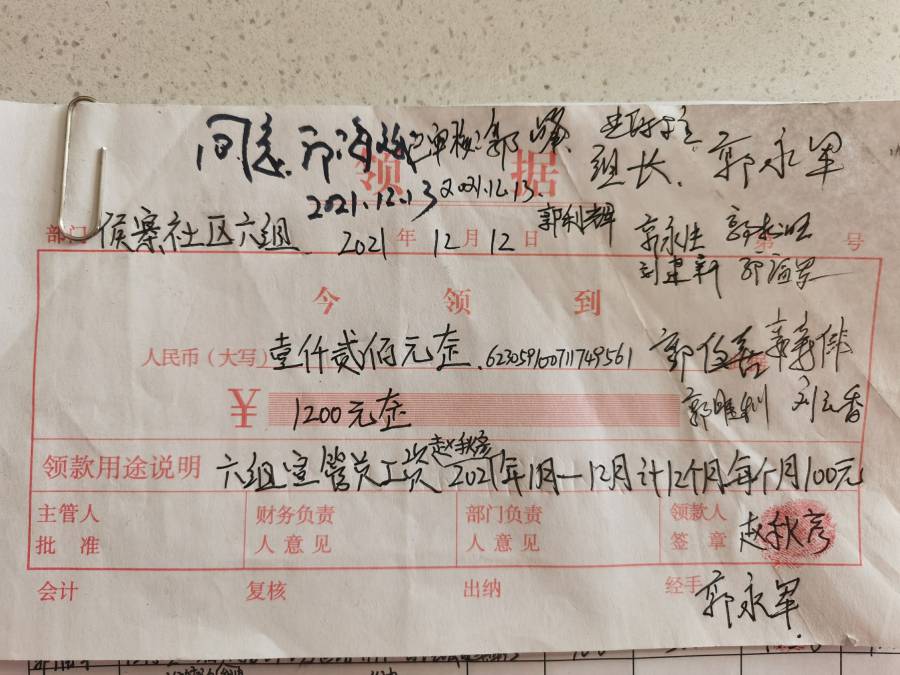 同意 已审核 郭 组长 郭永军
领据
2021.12.13 2021.12.13.
部门 侯寨社区六组 2021年12月12日 第 号
郭利辉 郭永生
刘建新
今领到
人民币（大写）壹仟贰佰元整 .623059100711749561 郭伟
¥ 1200元整 刘云香
领款用途说明 六组宣管员工资赵秋彦2021年1月—12月计12个月每个月100元
主管人批准 财务负责人意见 部门负责人意见 领款人签章 赵秋彦
会计 复核 出纳 经手 郭永军